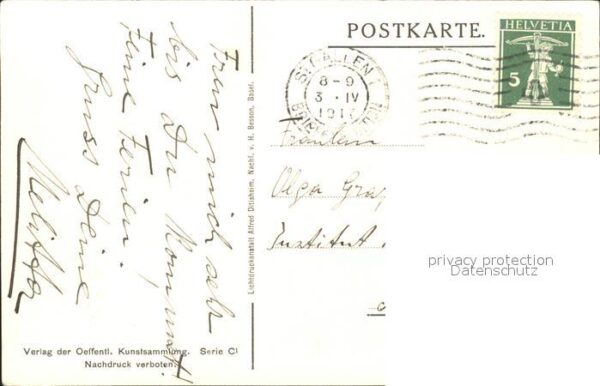 POSTKARTE.
HELVETIA
5
ST. GALLEN
8-9
3. IV
191
Freu mich sehr
bis Du kommst!
Feine Ferien.
Gruss Deine
Melitta
Fräulein
Olga Gra
Institut
privacy protection
Datenschutz
Lichtdruckanstalt Alfred Ditisheim, Nachf. v. H. Besson, Basel.
Verlag der Oeffentl. Kunstsammlung. Serie CI
Nachdruck verboten.